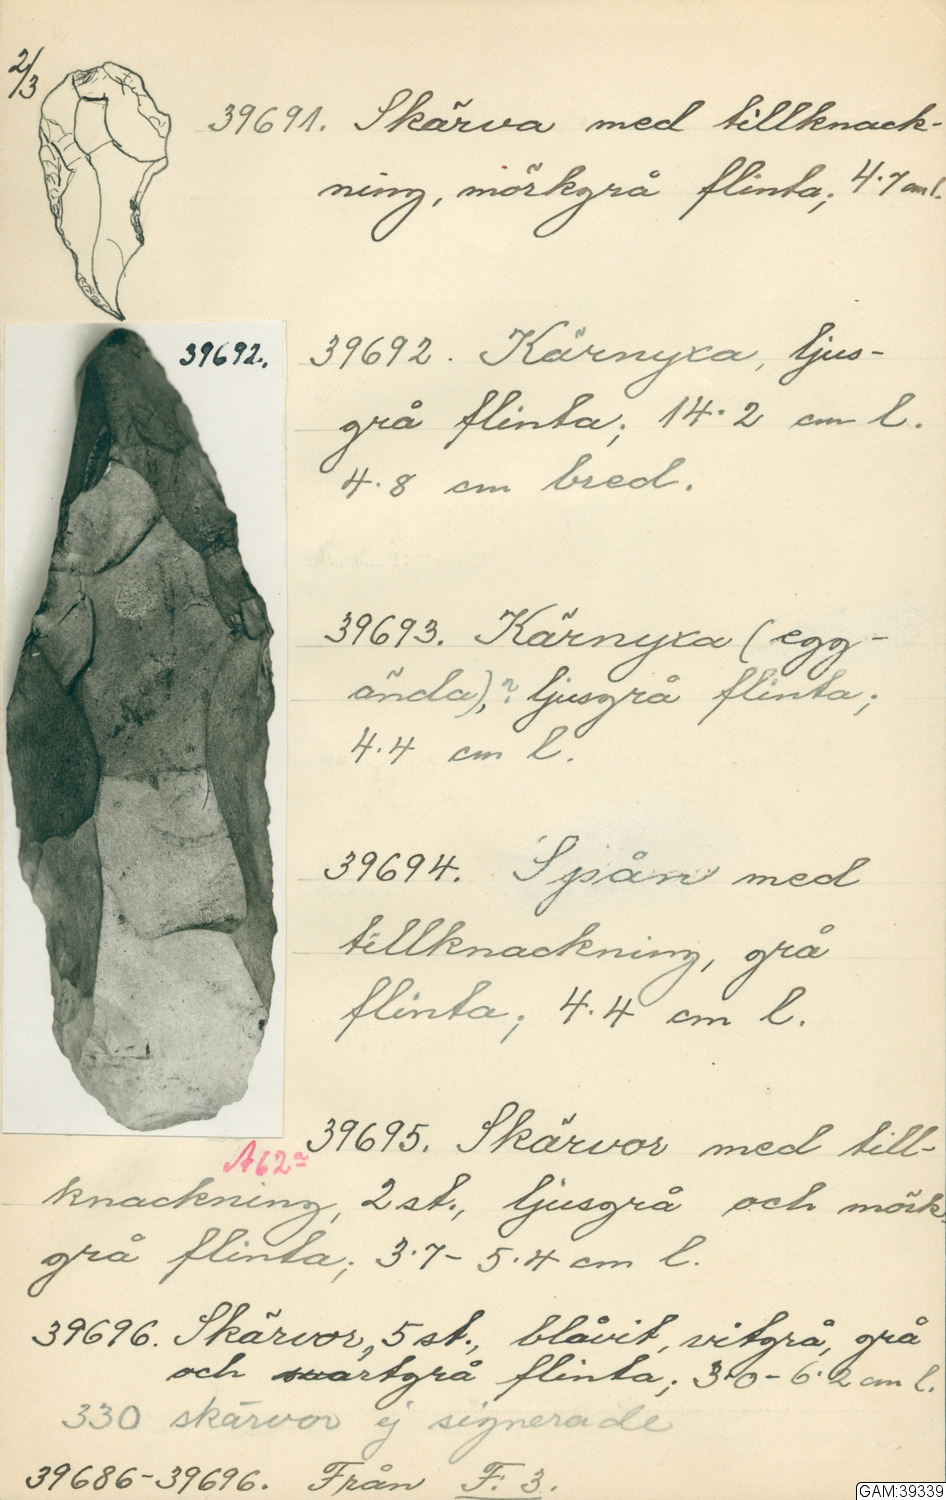 2/3
39691. Skärva med tillknack-
ning, mörkgrå flinta; 4.7 cm l.
39692.
39692. Kärnyxa, ljus-
grå flinta; 14.2 cm l.
4.8 cm bred.
39693. Kärnyxa (egg-
ända),? ljusgrå flinta;
4.4 cm l.
39694. Spån med
tillknackning, grå
flinta; 4.4 cm l.
A62a
39695. Skärvor med till-
knackning, 2 st., ljusgrå och mörk
grå flinta; 3.7 - 5.4 cm l.
39696. Skärvor, 5 st., blåvit, vitgrå, grå
och svartgrå flinta; 3.0 - 6.2 cm l.
330 skärvor ej signerade
39686-39696. Från F. 3.
GAM:39339